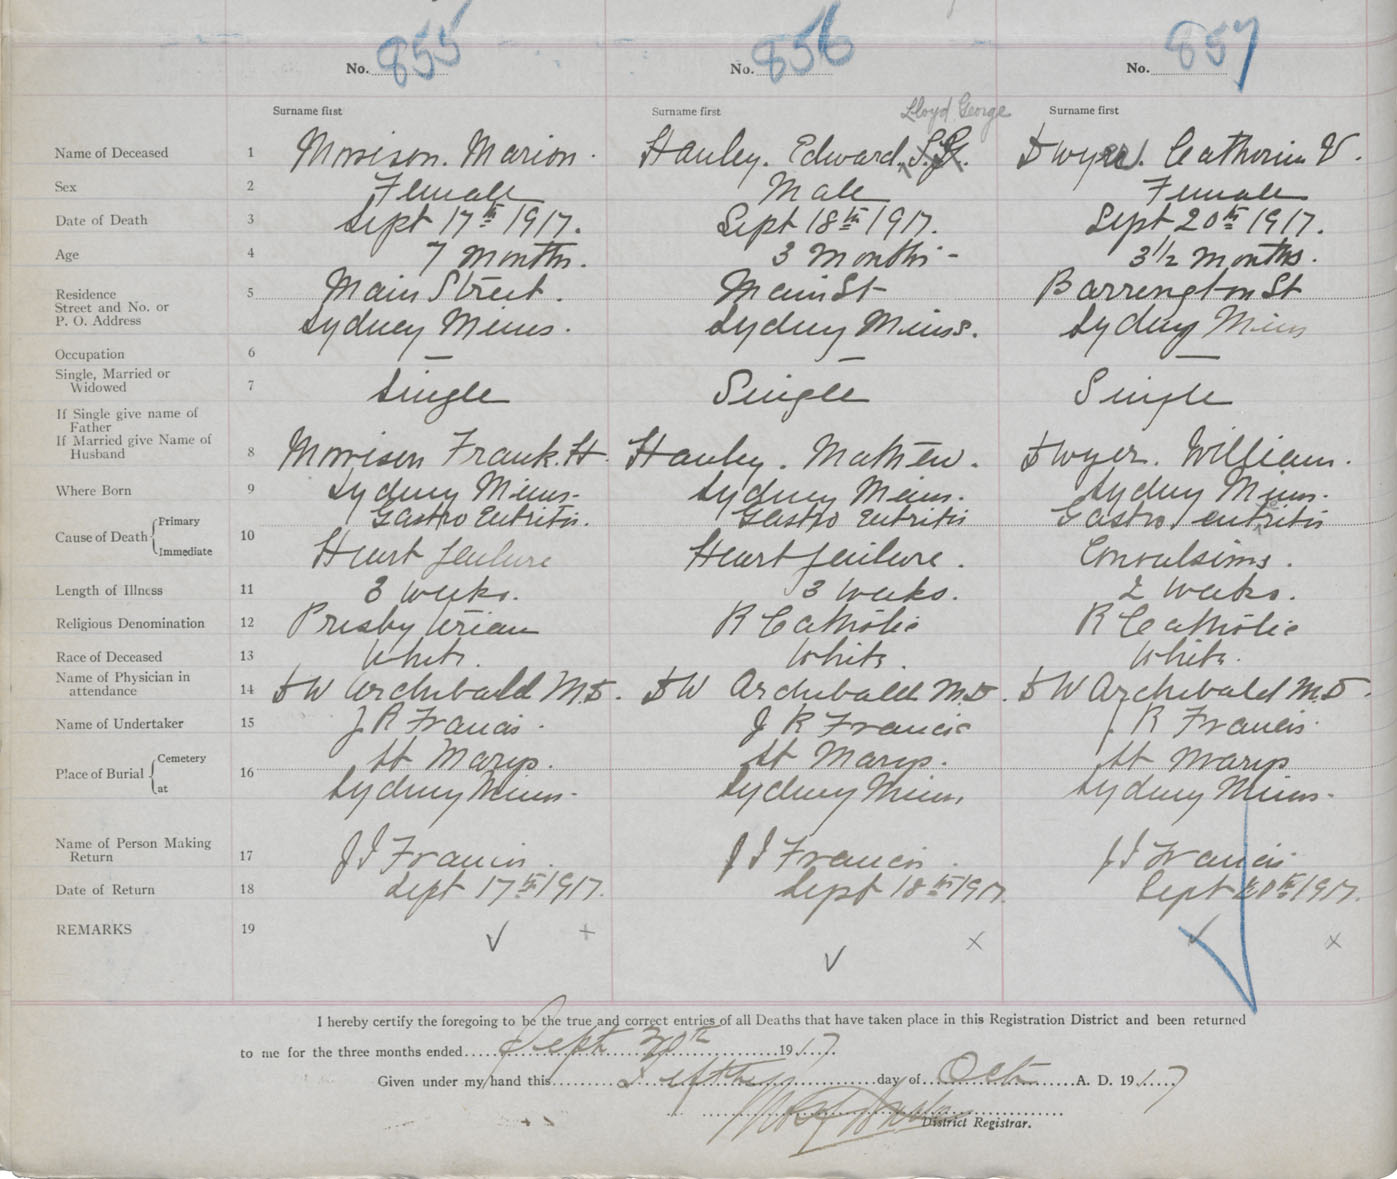 No. 855 No. 856 No. 857
Surname first Surname first Lloyd George Surname first
Name of Deceased 1 Morrison. Marion. Hanley. Edward. Dwyer. Catherine V.
Sex 2 Female Male Female
Date of Death 3 Sept 17th 1917. Sept 18th 1917. Sept 20th 1917.
Age 4 7 months. 3 months - 3 1/2 months.
Residence
Street and No. or 5 Main Street. Main St Barrington St
P. O. Address Sydney Mines. Sydney Mines. Sydney Mines
Occupation 6 — — —
Single, Married or
Widowed 7 Single Single Single
If Single give name of
Father
If Married give Name of
Husband 8 Morrison Frank. H. Hanley. Mathew. Dwyer. William.
Where Born 9 Sydney Mines. Sydney Mines. Sydney Mines.
Cause of Death Primary 10 Gastro Entritis. Gastro Entritis Gastro entritis
Immediate Heart failure Heart failure. Convulsions.
Length of Illness 11 3 weeks. 3 weeks. 2 weeks.
Religious Denomination 12 Presbyterian R Catholic R Catholic
Race of Deceased 13 White. White. White.
Name of Physician in
attendance 14 D W Archibald M.D. D W Archibald M.D. D W Archibald M.D.
Name of Undertaker 15 J R Francis. J R Francis J R Francis.
Place of Burial Cemetery 16 St Marys. St Marys. St Marys
at Sydney Mines. Sydney Mines, Sydney Mines.
Name of Person Making
Return 17 J J Francis. J J Francis. J J Francis
Date of Return 18 Sept 17th 1917. Sept 18th 1917. Sept 20th 1917.
REMARKS 19
I hereby certify the foregoing to be the true and correct entries of all Deaths that have taken place in this Registration District and been returned
to me for the three months ended Sept 30th 1917.
Given under my hand this fifth day of Octr A. D. 1917
District Registrar.